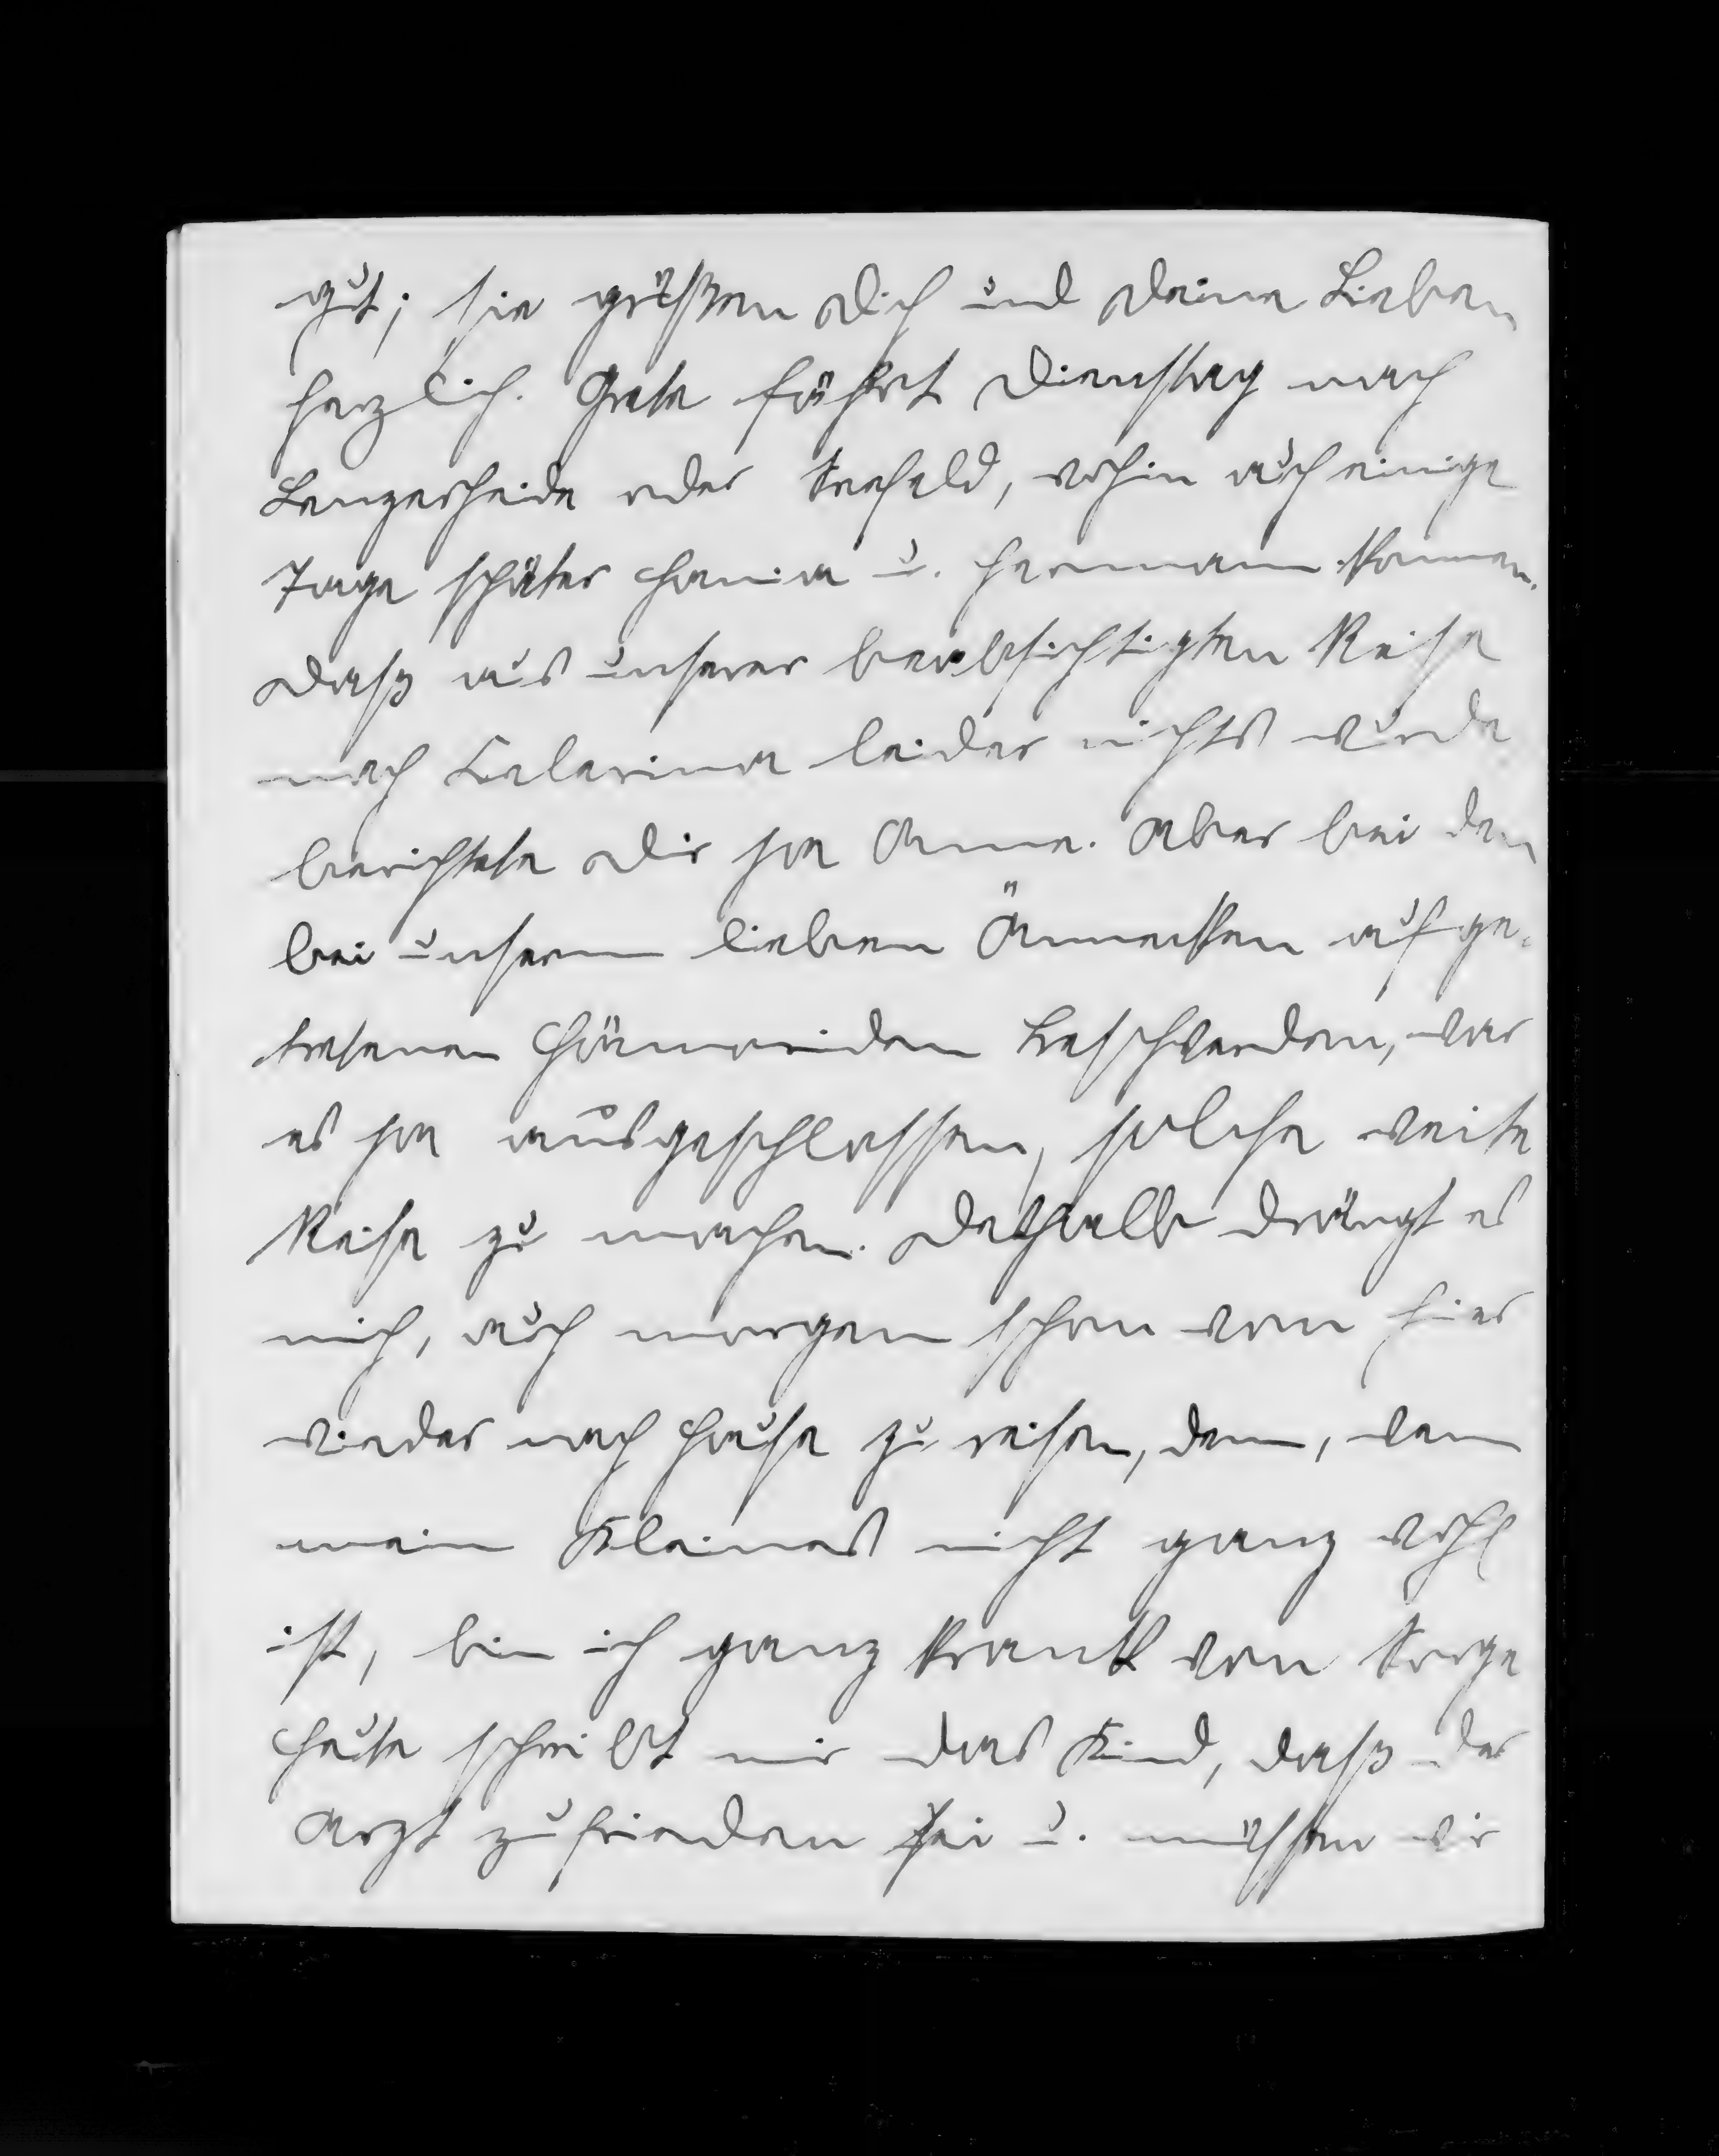 gut; sie grüßen Dich und Deine Lieben
herzlich. Grete fährt Dienstag nach
Lenzerheide oder Seefeld, wohin auch einige
Tage später u. Hermann kommen.
Daß aus unserer beabsichtigten Reise
nach Celerina leider nichts wurde
berichtete Dir ja Anna. Aber bei den
bei unserm lieben Ännecken aufge-
tretenen Hämoriden Beschwerden, war
es ja ausgeschlossen, solche weite
Reise zu machen. Deshalb drängt es
mich, auch morgen schon von hier
wieder nach Hause zu reisen, denn, wenn
mein Kleines nicht ganz wohl
ist, bin ich ganz krank von Sorge
Heute schreibt mir das Kind, daß der
Arzt zufrieden sei u. müssen wir